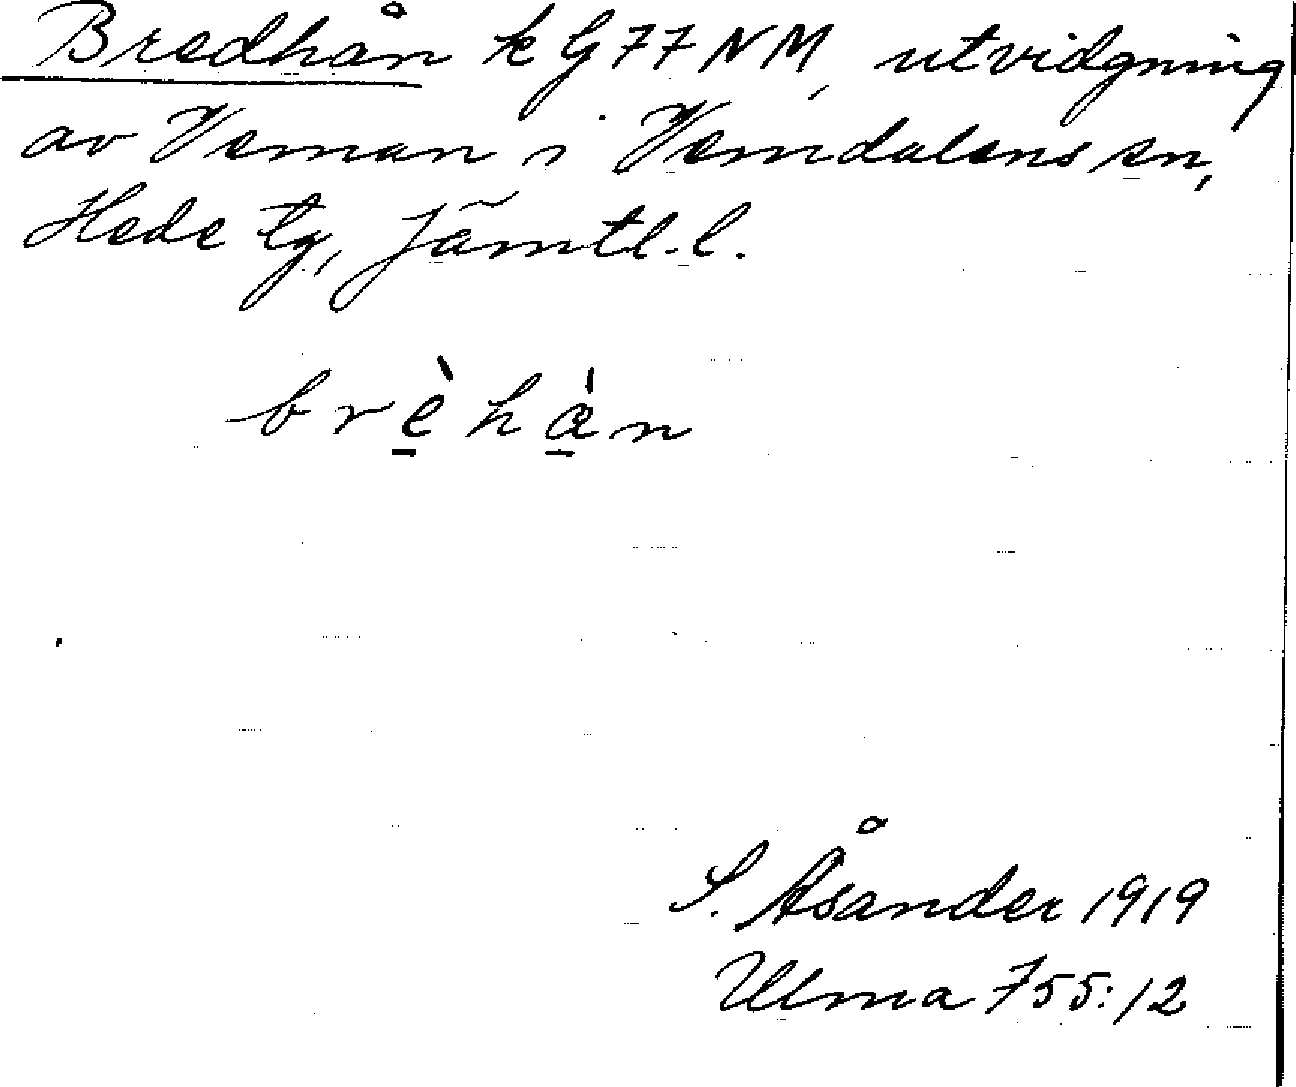 Bredhån k G77 NM, utvidgning
av Veman i Vemdalens sn,
Hede tg, Jämtl. l.
brèhàn
S. Åsander 1919
Ulma 755:12